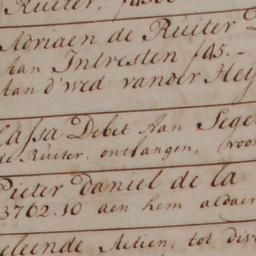 Ruiter.
Adriaen de Ruiter
Aan Intresten f45.-
Aan d'wed vander Heij
Cassa Debet Aan Segel
de Ruiter, ontfangen, voor
Pieter Daniel de la
3762.10 aen hem
Actien, tot